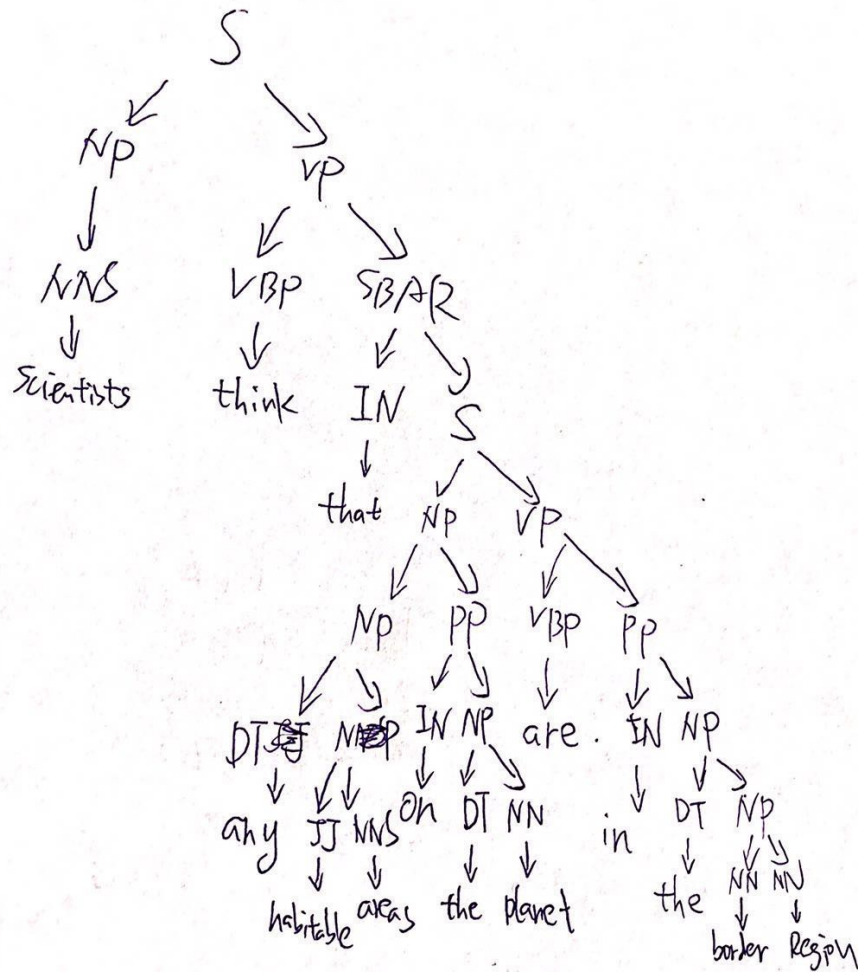 S
NP VP
NNS VBP SBAR
Scientists think IN S
that NP VP
NP PP VBP PP
DT NP IN NP are. IN NP
any JJ NNS on DT NN in DT NP
habitable areas the planet the NN NN
border Region